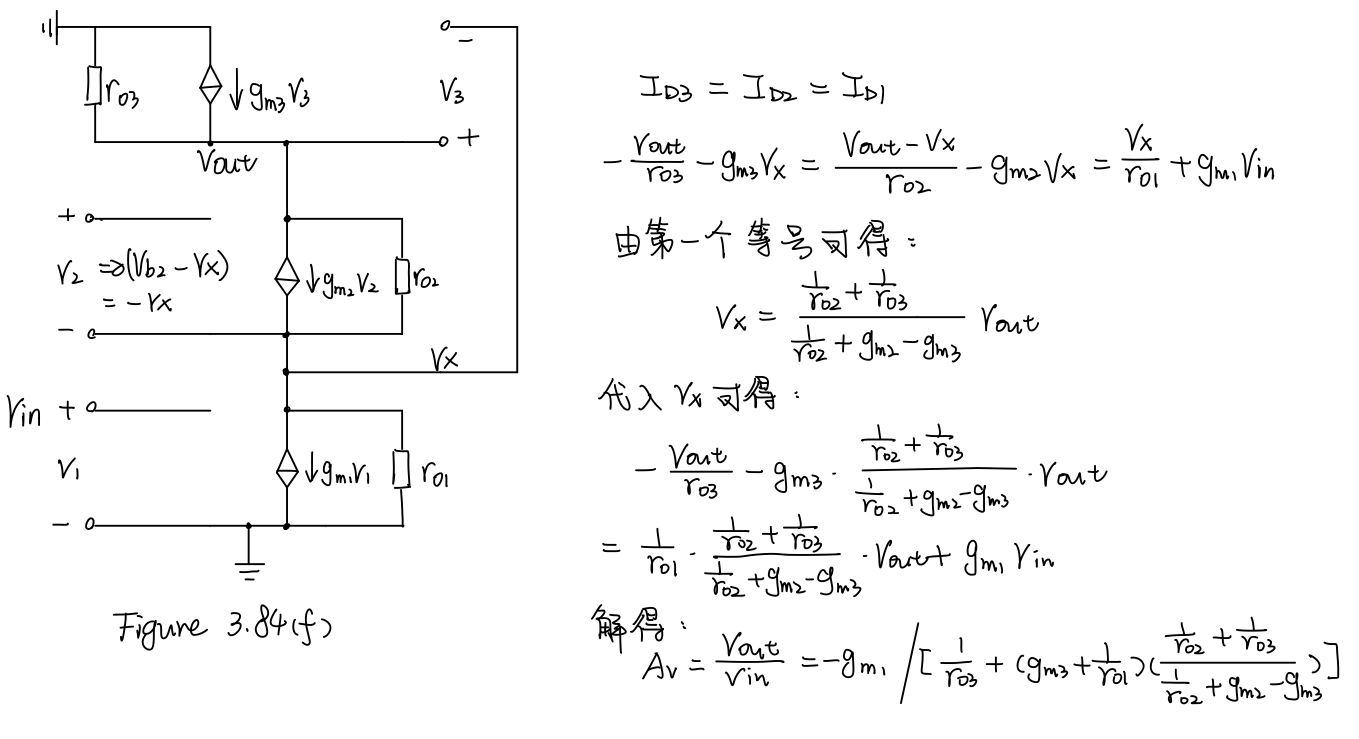 r03
gm3V3
-
V3
+
Vout
+
V2 ⇒(Vb2-Vx)
= -Vx
-
gm2V2
r02
Vx
Vin +
V1
-
gm1V1
r01
Figure 3.84(f)
ID3 = ID2 = ID1
-Vout/r03 - gm3Vx = (Vout-Vx)/r02 - gm2Vx = Vx/r01 + gm1Vin
由第一个等号可得:
Vx = (1/r02 + 1/r03)/(1/r02 + gm2 - gm3) Vout
代入Vx可得:
-Vout/r03 - gm3·(1/r02 + 1/r03)/(1/r02 + gm2 - gm3)·Vout
= 1/r01·(1/r02 + 1/r03)/(1/r02 + gm2 - gm3)·Vout + gm1Vin
解得:
Av = Vout/Vin = -gm1/[1/r03 + (gm3 + 1/r01)((1/r02 + 1/r03)/(1/r02 + gm2 - gm3))]